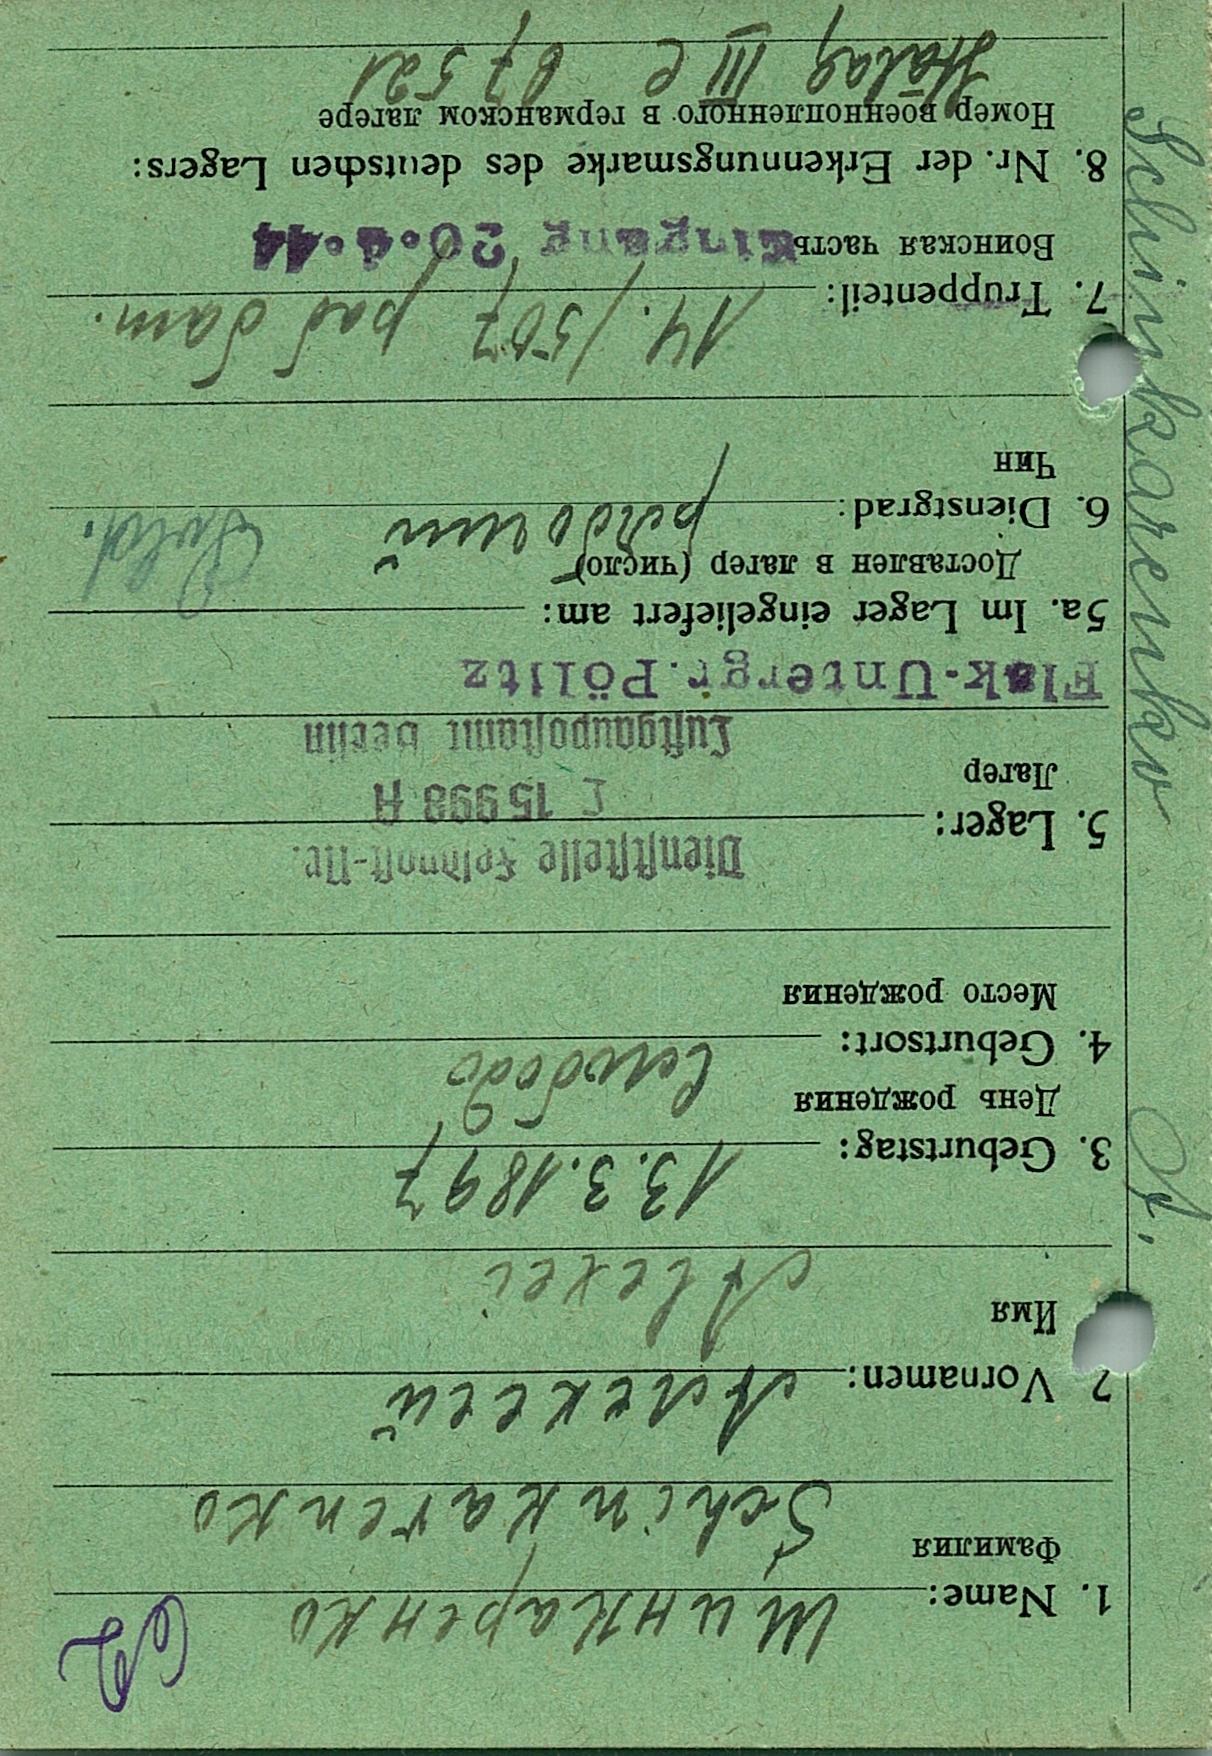 62
1. Name: Шинкаренко
Фамилия
Schinkarenko
2 Vornamen: Алексей
Имя
Alexei
3. Geburtstag: 13.3.1897
День рождения
4. Geburtsort: Слобода
Место рождения
Dienststelle Feldpost-Nr.
5. Lager: L 15998 A
Лагер
Luftgaupostamt Berlin
Flak-Untergr. Pölitz
5a. Im Lager eingeliefert am:
Доставлен в лагер (число)
6. Dienstgrad: рядовий Sold.
Чин
7. Truppenteil: 14./507 раб бат.
Воинская часть
Eingang 20.4.44
8. Nr. der Erkennungsmarke des deutschen Lagers:
Номер военнопленного в германском лагере
Stalag III C 67521
Schinkarenko A.